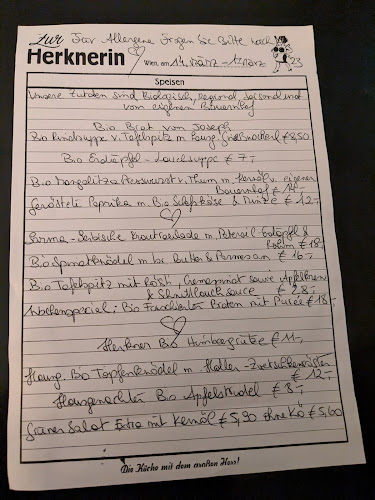 Für Allergene Fragen Sie Bitte nach
zur
Herknerin
Wien, am 14. März – 1 März 23
Speisen
Unsere Zutaten sind Biologisch, regional saisonal und
vom eigenen Bauernhof
Bio Brot vom Joseph
Bio Rindsuppe v. Tafelspitz m hausg. Grießnockerl € 8,50
Bio Erdäpfel - Lauchsuppe € 7,-
Bio Mangalitza Presswurst v. Thum m. Kernöl v. eigenen
Bauernhof € 14,-
Geröstete Paprika m. Bio Schafkäse & Minze € 12,-
Sarma - Serbische Krautroulade m. Petersil-Erdäpfel &
Rahm € 18
Bio Spinatknödel m br. Butter & Parmesan € 16,-
Bio Tafelspitz mit Rösti, Cremespinat sowie Apfelkren
& Schnittlauchsauce € 28,-
Wochenspecial: Bio Faschierter Braten mit Püree € 18,-
Herkner Bio Himbeergrütze € 11,-
Hausg Bio Topfenknödel m. Holler - Zwetschkenröster
€ 12,-
Hausgemachter Bio Apfelstrudel € 8,-
Grüner Salat Extra mit Kernöl € 5,90 ohne Kö € 5,60
Die Küche mit dem großen Herz!